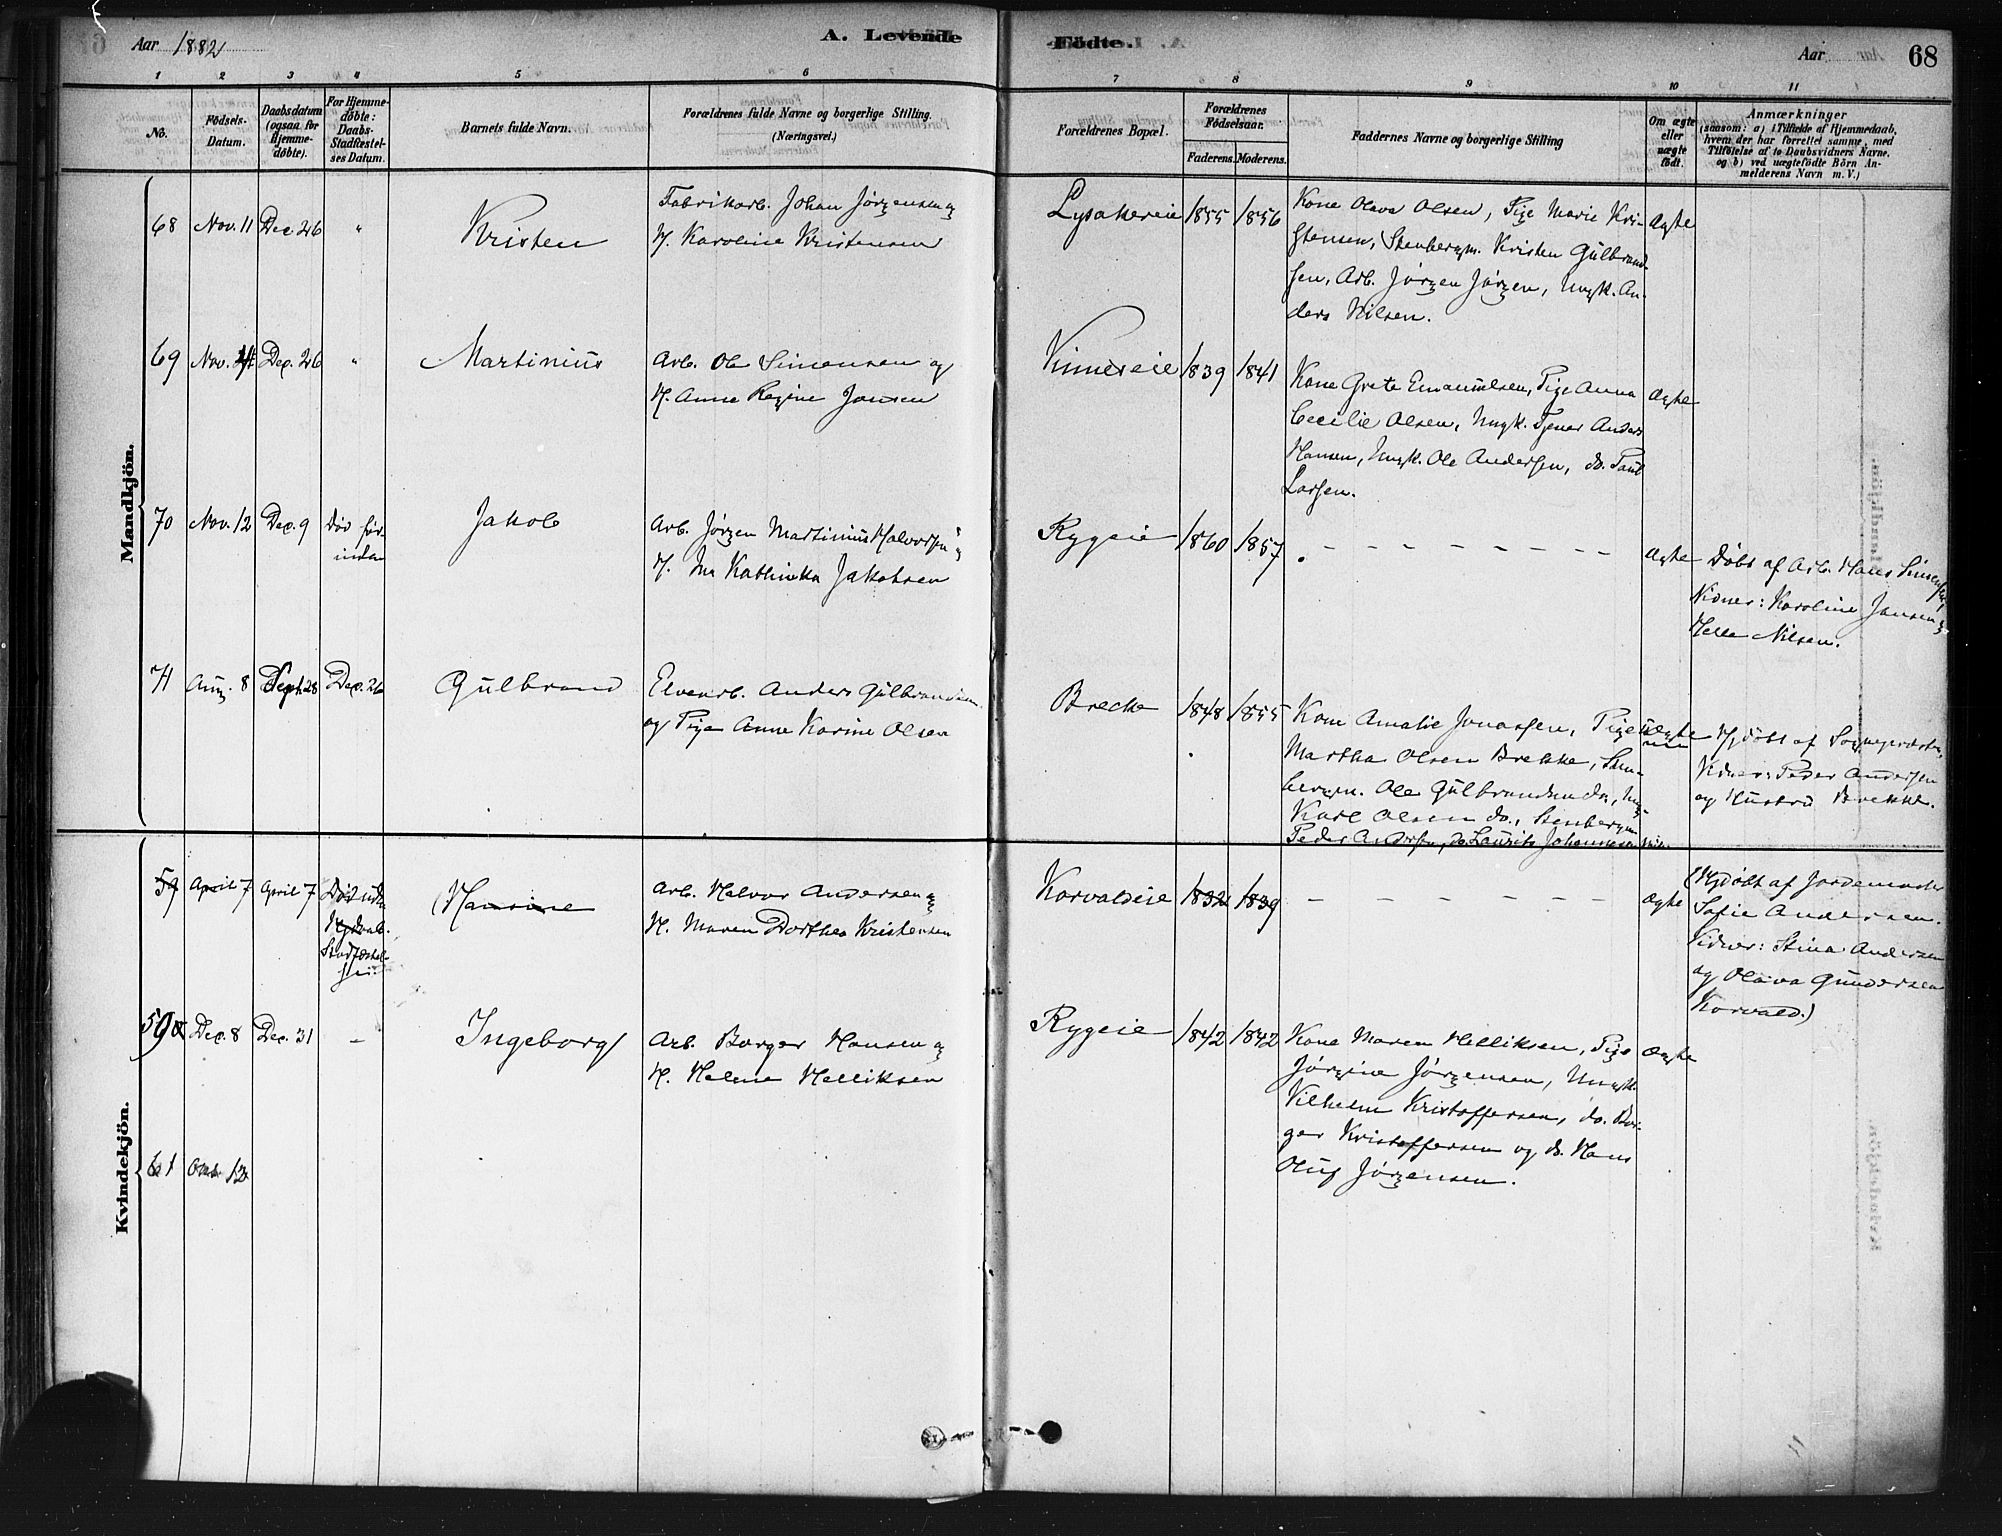 Aar 1882
A. Levende
Fødte.
Aar
68
1 2 3 4 5 6 7 8 9 10 11
No.
Fødsels-
Datum.
Daabsdatum
(ogsaa for
Hjemme-
døbte).
For Hjemme-
døbte:
Daabs-
Stadfæstel-
ses Datum.
Barnets fulde Navn.
Forældrenes fulde Navne og borgerlige Stilling.
(Næringsvei.)
Forældrenes Bopæl.
Forældrenes
Fødselsaar.
Faderens. Moderens.
Faddernes Navne og borgerlige Stilling
Om ægte
eller
uægte
født.
Anmærkninger
(saasom: a) i Tilfælde af Hjemmedaab,
hvem der har forrettet samme, med
Tilføielse af to Daabsvidners Navne.
og b) ved uægtefødte Børn An-
melderens Navn m. V.)
Mandkjön.
68 Nov. 11 Dec 26 " Kristen
Fabrikarb. Johan Jørgensen og
H. Karoline Kristensen
Lysakereie 1855 1856
Kone Olava Olsen, Pige Marie Kri-
stensen, Stenbergm. Kristen Gulbrand-
sen, Arb. Jørgen Jørgen, Ungk. An-
ders Nilsen.
Ægte
69 Nov. Dec. 26 " Martinius
Arb. Ole Simensen og
H. Anne Regine Jansen
1839 1841
Kone Grete Emanuelsen, Pige Anna
Cecilie Olsen, Ungk. Tjener Anders
Hansen, Ungk. Ole Andersen, do. Paul
Larsen.
Ægte
70 Nov. 12 Dec. 9 Død for-
inden
Jakob
Arb. Jørgen Martinius Halvorsen og
H. Ina Kathinka Jakobsen
Rygeie 1860 1857 - - - - - - - -
Ægte
Døbt af Arb. Hans Simensen,
Vidner: Karoline Jansen og
Helle Nilsen.
71 Aug. 8 Sept. 28 Dec. 26 Gulbrand
Elvearb. Anders Gulbrandsen
og Pige Anne Karine Olsen
Brecke 1848 1855
Kone Amalie Jonassen, Pige
Martha Olsen Brekke, Sten-
bergm. Ole Gulbrandsen do, Ung-
Karl Olsen do., Stenbergm
Peder Andersen, do Laurits Johannesen
Uægte
Hjdøbt af Sognepræsten,
Vidner: Peder Andersen
og Hustru Brekke.
Kvindekjön.
59 April 7 April 7 Død uden
Hjdaab.
Stadfæstel-
sen.
(Hansine
Arb. Halvor Andersen og
H. Maren Dorthea Kristensen
Korvaldeie 1832 1839 - - - - - -
Ægte
(Hjdøbt af Jordemoder
Sofie Andersen.
Vidner: Stina Andersen
og Olava Gundersen
Korvald.)
59 Dec. 8 Dec. 31 - Ingeborg
Arb. Borger Hansen og
H. Helene Helliksen
Rygeie 1842 1842
Kone Maren Helliksen, Pige
Jørgine Jørgensen, Ungk.
Vilhelm Kristoffersen, do. Bor-
ger Kristoffersen og do. Hans
Oluf Jørgensen.
Ægte
61